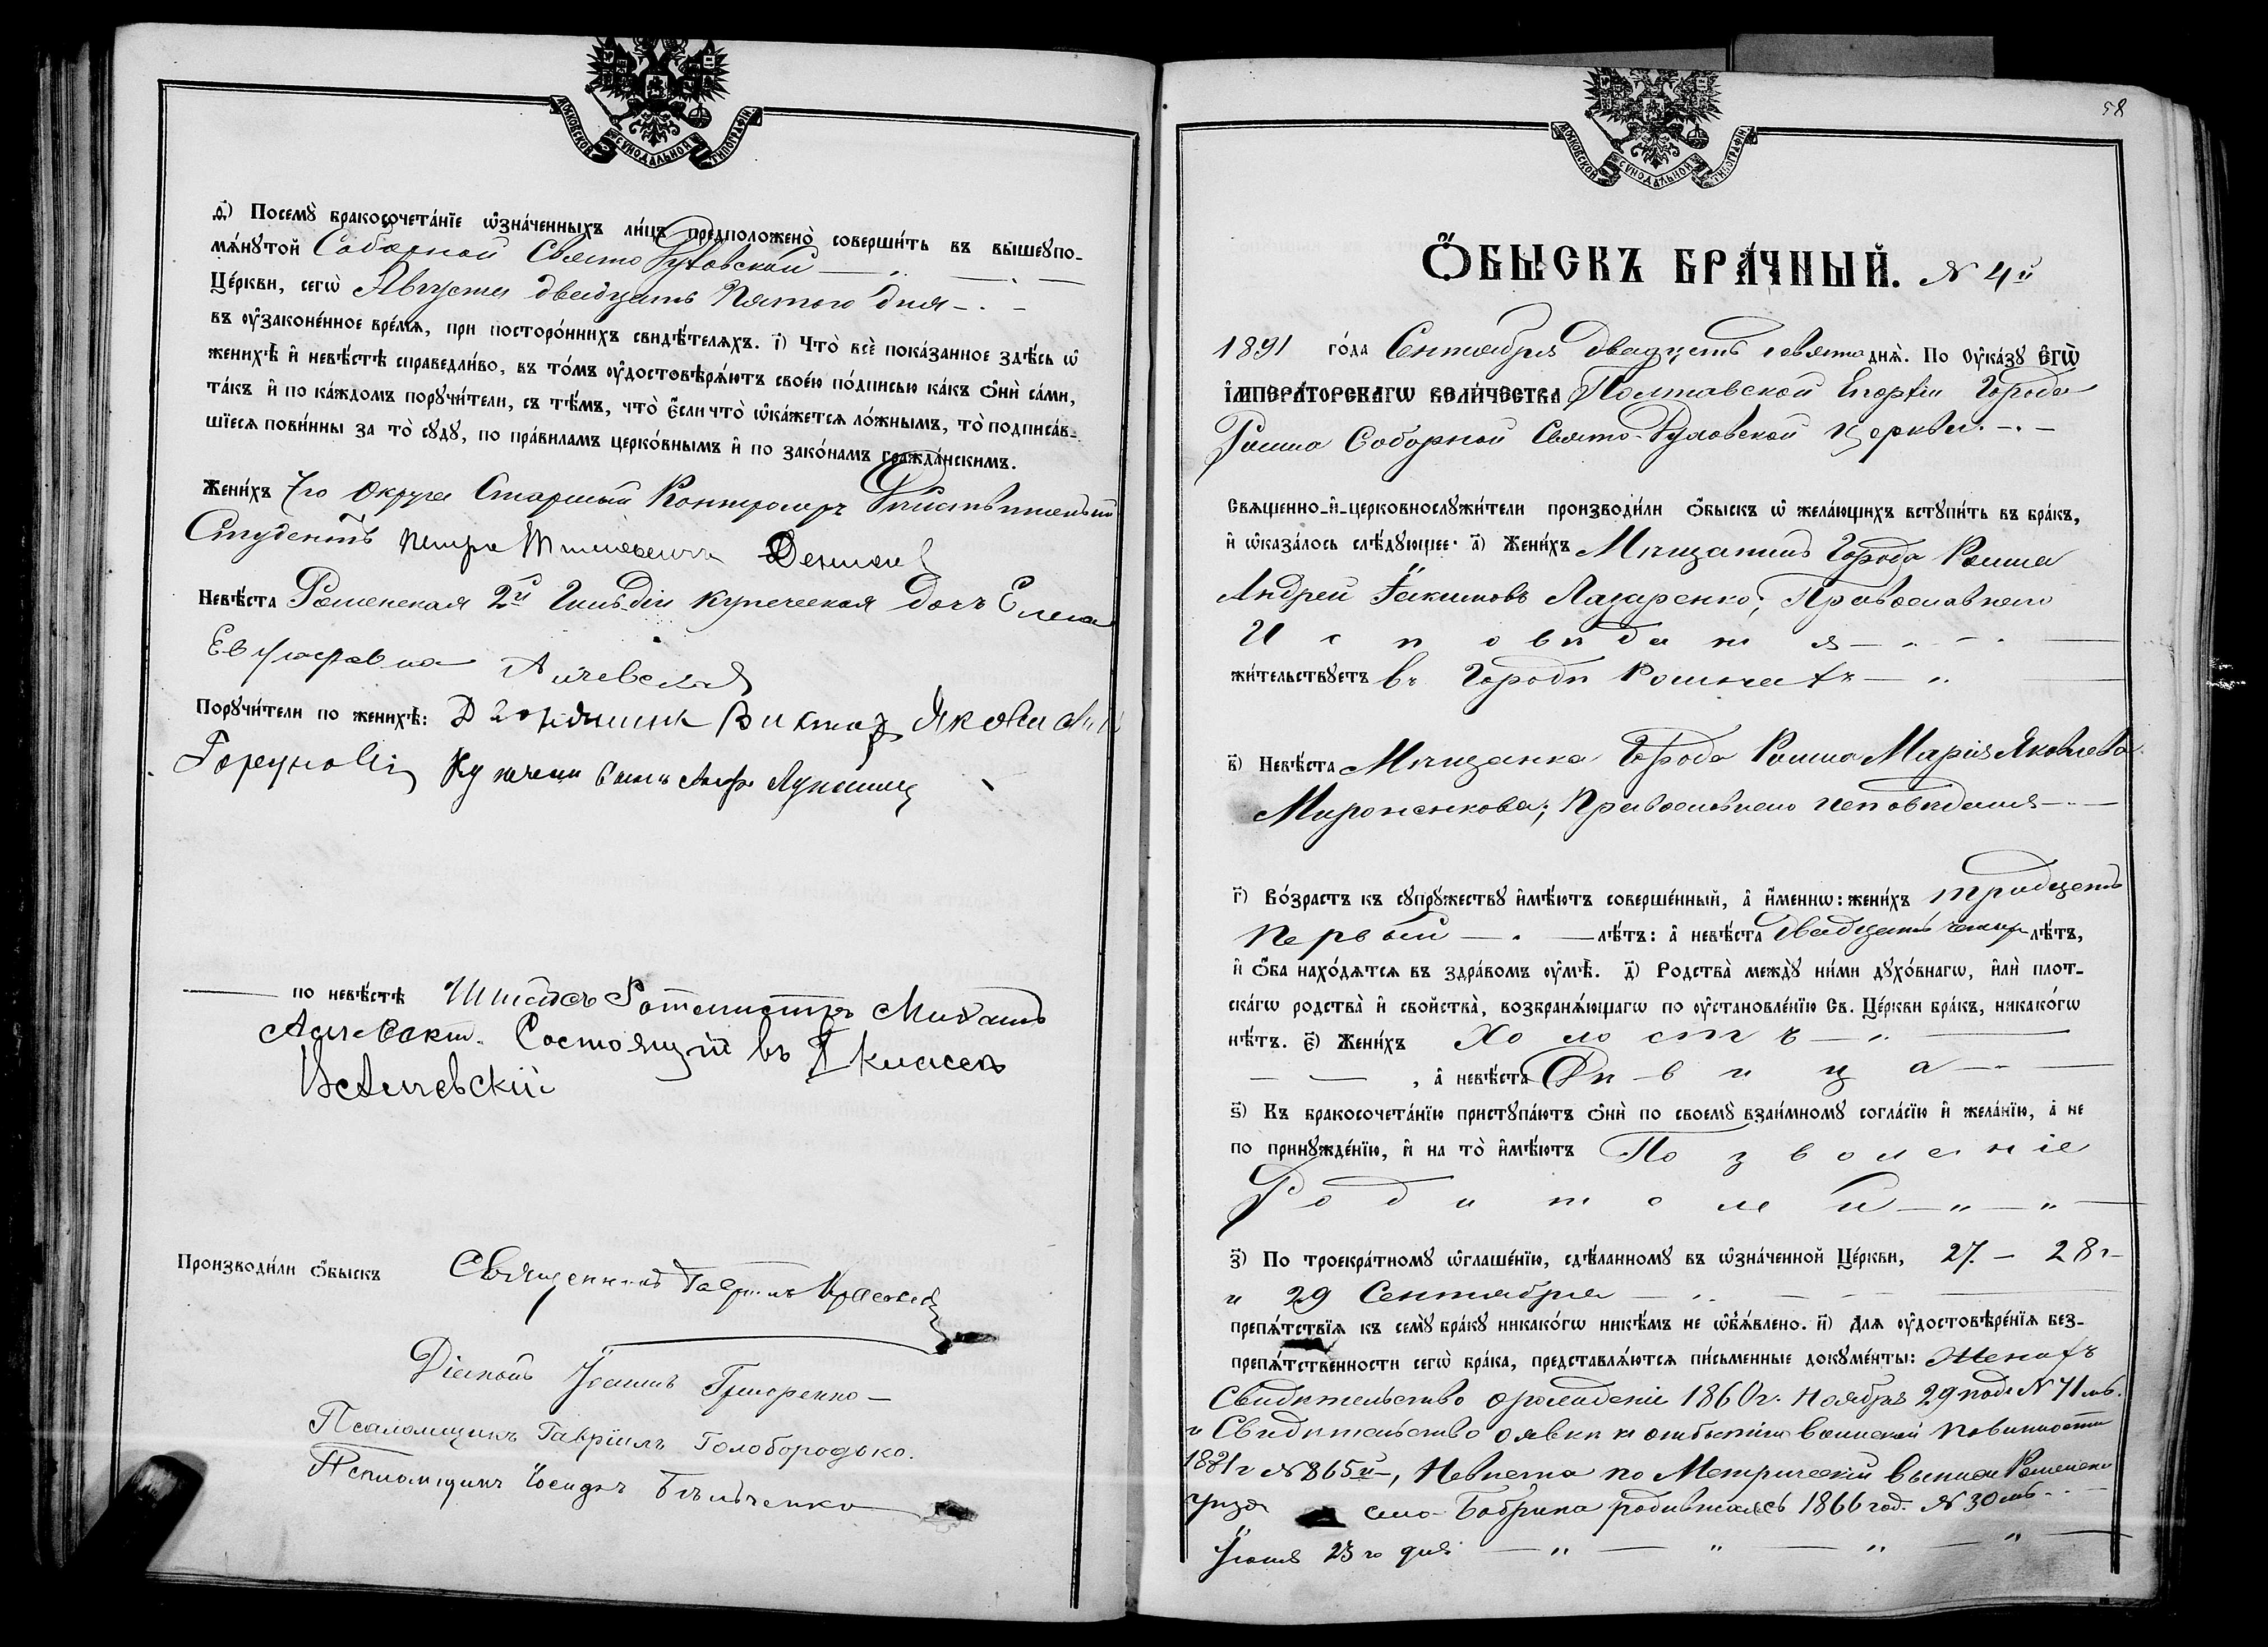 МОСКОВСКОЙ СѴНОДАЛЬНОЙ ТИПОГРАФІИ.
д҃) Посемꙋ̀ бракосочета́нїе ѡ҆зна́ченныхъ ли́цъ предположено̀ соверши́ть въ вышеꙋпо-
мѧ́нꙋтой Соборной Свято Духовской
Це́ркви, сегѡ̀ Августа двадцать пятого дня
въ ᲂу҆законе́нное вре́мѧ, при посторо́ннихъ свидѣ́телѧхъ. і҃) Что̀ всѐ пока́занное здѣ́сь ѡ҆
женихѣ̀ и҆ невѣ́стѣ справедли́во, въ то́мъ ᲂу҆достовѣрѧ́ютъ свое́ю по́дписью ка́къ ѻ҆нѝ са́ми,
та́къ и҆ по ка́ждомъ порꙋчи́тели, съ тѣ́мъ, что̀ є҆́сли что̀ ѡ҆ка́жетсѧ ло́жнымъ, то̀ подписа́в-
шїесѧ пови́нны за то̀ сꙋдꙋ̀, по пра́виламъ церко́внымъ и҆ по зако́намъ гражда́нскимъ.
Жени́хъ 7го Округа Старшый Контролеръ Дѣйствительный
Студентъ Петръ
Невѣ́ста Роменская 2й Гильдіи купеческая дочь Елена
Евграфовна Алчевская
Порꙋчи́тели по женихѣ̀: Дворянинъ Викторъ Яковлевичъ
Горуновичъ Купеческій сынъ
по невѣ́стѣ Штабсъ Ротмистръ Михаилъ
Алчевскій. Состоящій въ I классѣ
Алчевскій
Производи́ли ѻ҆́быскъ Священникъ Гавріилъ
Діаконъ Іоаннъ Григоренко
Псаломщикъ Гавріилъ Голобородько.
Псаломщикъ Бѣльченко
58
МОСКОВСКОЙ СѴНОДАЛЬНОЙ ТИПОГРАФІИ.
Ѻ҆́БЫСКЪ БРА́ЧНЫЙ. № 4й
1891 го́да Сентября двадцать девято днѧ̀. По Оу҆ка́зꙋ Є҆гѡ̀
І҆МПЕРА́ТОРСКАГѠ ВЕЛИ́ЧЕСТВА Полтавской Епархіи Города
Ромна Соборной Свято-Духовской Церкви.
Свѧщенно-и҆-церковнослꙋжи́тели производи́ли ѻ҆́быскъ ѡ҆ жела́ющихъ встꙋпи́ть въ бра́къ,
и҆ ѡ҆каза́лось слѣ́дꙋющее: а҃) Жени́хъ Мѣщанинъ Города Ромна
Андрей Іакимовъ Лазаренко, Православнаго
Исповѣданія
жи́тельствꙋетъ въ Городѣ Ромнахъ
в҃) Невѣ́ста Мѣщанка Города Ромна Марія Яковлева
Мироненкова; Православнаго исповѣданія
г҃) Во́зрастъ къ сꙋпрꙋжествꙋ и҆мѣ́ютъ соверше́нный, а҆ и҆́менно: жени́хъ тридцать
первый лѣ́тъ: а҆ невѣ́ста двадцать четыр лѣ́тъ,
и҆ ѻ҆́ба нахо́дѧтсѧ въ здра́вомъ ᲂу҆мѣ̀. д҃) Родства̀ междꙋ̀ ни́ми дꙋхо́внагѡ, и҆лѝ плот-
ска́гѡ родства̀ и҆ свойства̀, возбранѧ́ющагѡ по ᲂу҆становле́нїю Св. Це́ркви бра́къ, никако́гѡ
нѣ́тъ. є҃) Жени́хъ Холостъ
, а҆ невѣ́ста Дѣвица
ѕ҃) Къ бракосочета́нїю пристꙋпа́ютъ ѻ҆нѝ по своемꙋ̀ взаи́мномꙋ согла́сїю и҆ жела́нїю, а҆ не
по принꙋжде́нїю, и҆ на то̀ и҆мѣ́ютъ Позволеніе
Родителей
з҃) По троекра́тномꙋ ѡ҆глаше́нїю, сдѣ́ланномꙋ въ ѡ҆зна́ченной Це́ркви, 27. – 28 –
и 29 Сентября
препѧ́тствїѧ къ семꙋ̀ бра́кꙋ никако́гѡ никѣ́мъ не ѡ҆б̾ѧ́влено. и҃) Для ᲂу҆достовѣре́нїѧ без-
препѧ́тственности сегѡ̀ бра́ка, представлѧ́ютсѧ пи́сьменные докꙋме́нты: Женихъ
Свидѣтельство о рожденіи 1860 г. Ноября 29 подъ № 71мъ.
и Свидѣтельство о явкѣ къ отбытію воинской повинности
1881 г № 865й, Невѣста по Метрической выписи Роменско
уѣзда село Бобрика родившаясь 1866 год. № 30мъ
Іюня 23го дня